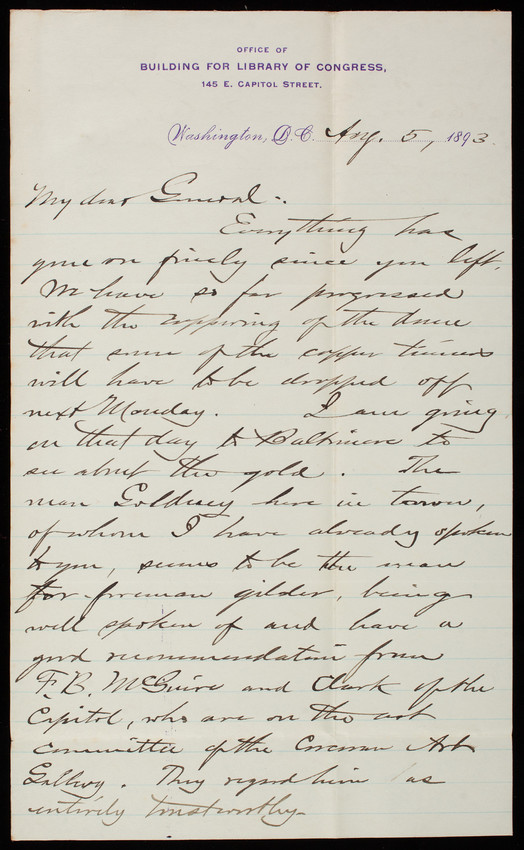 OFFICE OF
BUILDING FOR LIBRARY OF CONGRESS,
145 E. CAPITOL STREET.
Washington, D.C. Aug. 5, 1893.
My dear General:
Everything has
gone on finely since you left.
We have so far progressed
with the coppering of the dome
that some of the copper tinners
will have to be dropped off
next Monday. I am going
on that day to Baltimore to
see about the gold. The
man here in town,
of whom I have already spoken
to you, seems to be the man
for foreman gilder, being
well spoken of and have a
good recommendation from
F. B. McGuire and Clark of the
Capitol, who are on the art
committee of the Corcoran Art
Gallery. They regard him as
entirely trustworthy